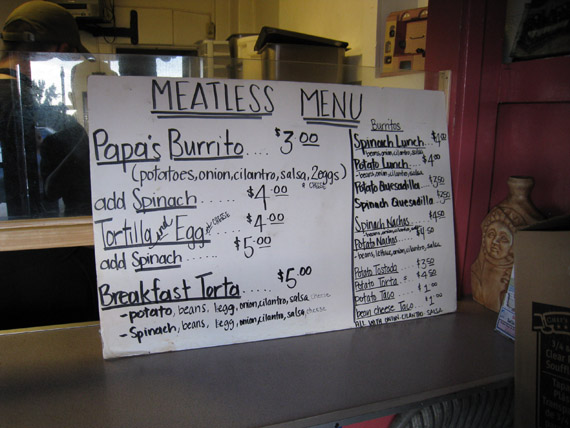 MEATLESS MENU
Papa's Burrito.... $3.00
(potatoes, onion, cilantro, salsa, 2 eggs)
& CHEESE
add Spinach..... $4.00
Tortilla and Egg & CHEESE $4.00
add Spinach..... $5.00
Breakfast Torta..... $5.00
- potato, beans, 1 egg, onion, cilantro, salsa cheese
- Spinach, beans, 1 egg, onion, cilantro, salsa cheese
Burritos
Spinach Lunch...
- beans, onion, cilantro, salsa
Potato Lunch.... $4.00
- beans, onion, cilantro, salsa
Potato Quesadilla $3.50
Spinach Quesadilla $3.50
Spinach Nachos $4.50
Potato Nachos $4.50
- beans, lettuce, onion, cilantro
Potato Tostada... $3.50
Potato Torta... $4.50
potato Taco... $1.00
bean cheese Taco $1.00
ALL WITH ONION CILANTRO SALSA